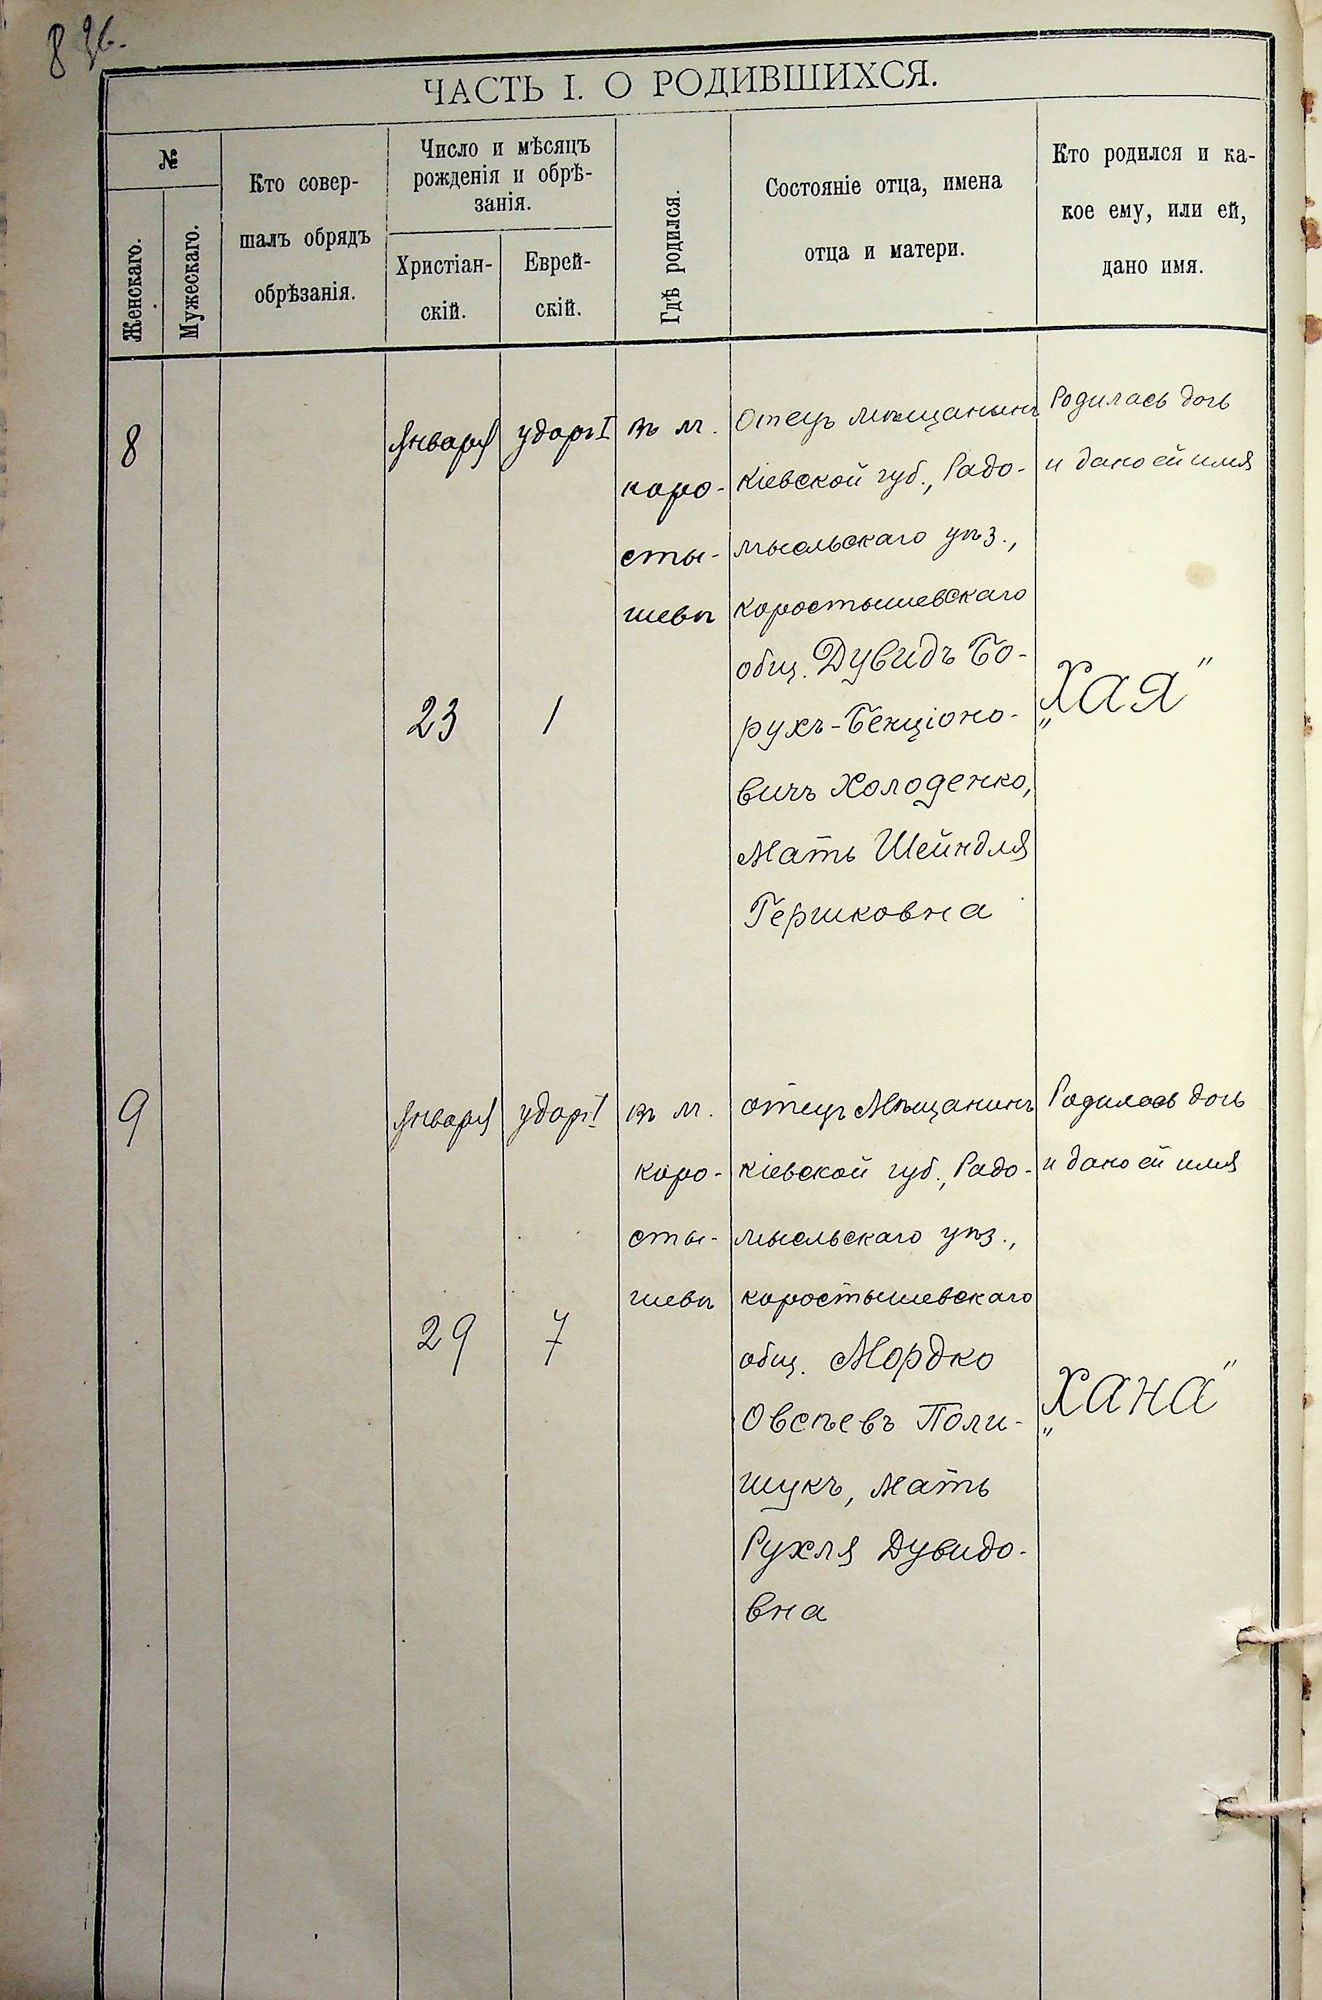 ЧАСТЬ I. О РОДИВШИХСЯ.
№
Женскаго.
Мужескаго.
Кто совер-
шалъ обрядъ
обрѣзанія.
Число и мѣсяцъ
рожденія и обрѣ-
занія.
Христіан-
скій.
Еврей-
скій.
Гдѣ родился.
Состояніе отца, имена
отца и матери.
Кто родился и ка-
кое ему, или ей,
дано имя.
8
Января
23
удоръ I
1
въ м.
Коро-
сты-
шевѣ
Отецъ мѣщанинъ
Кіевской губ., Радо-
мысльскаго уѣз.,
Коростышевскаго
общ. Дувидъ Бо-
рухъ-Бенціоно-
вичъ Холоденко,
Мать Шейндля
Гершковна
Родилась дочь
и дано ей имя
„Хая"
9
Января
29
удоръ I
7
въ м.
Коро-
сты-
шевѣ
Отецъ Мѣщанинъ
Кіевской губ., Радо-
мысльскаго уѣз.,
Коростышевскаго
общ. Мордко
Овсѣевъ Поли-
щукъ, Мать
Рухля Дувидо-
вна
Родилась дочь
и дано ей имя
„Хана"